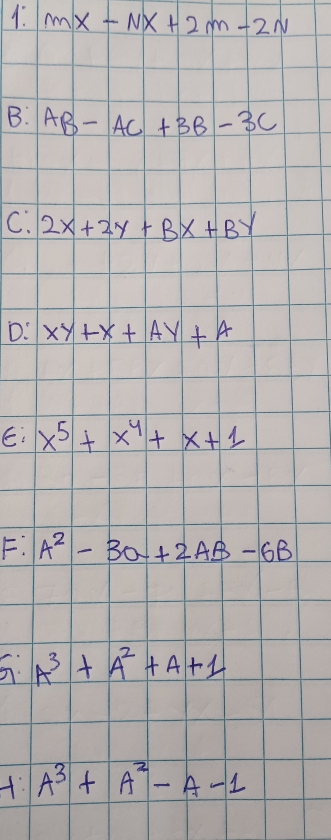 1: mx - Nx + 2m - 2N
B: AB - AC + 3B - 3C
C: 2X + 2Y + BX + BY
D: XY + X + AY + A
E: X⁵ + X⁴ + X + 1
F: A² - 3a + 2AB - 6B
G: A³ + A² + A + 1
H: A³ + A² - A - 1